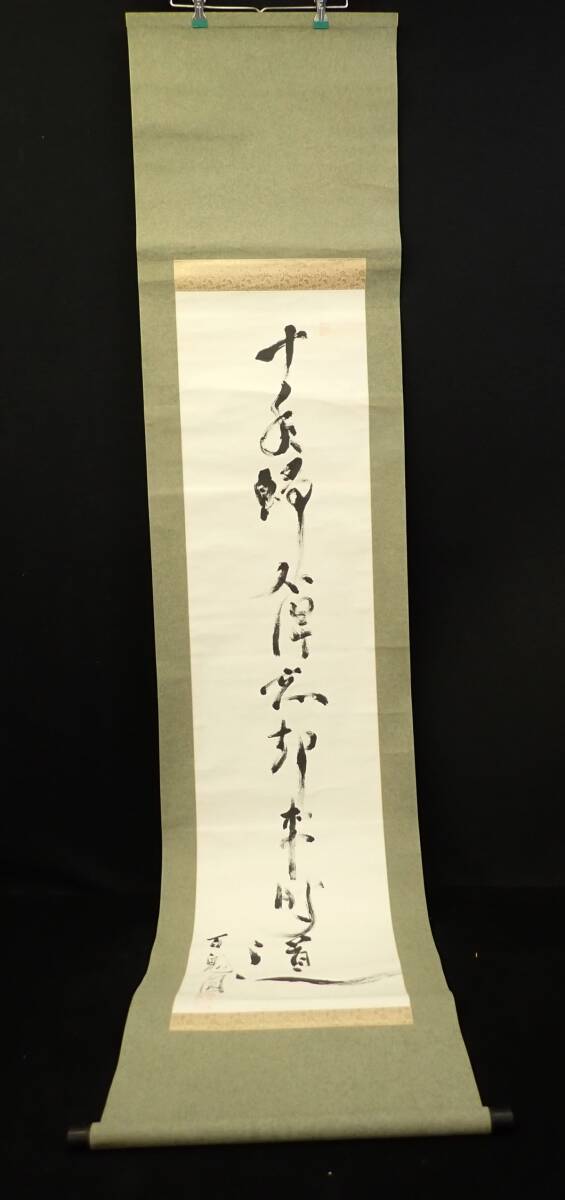 十年帰不得忘却来時道